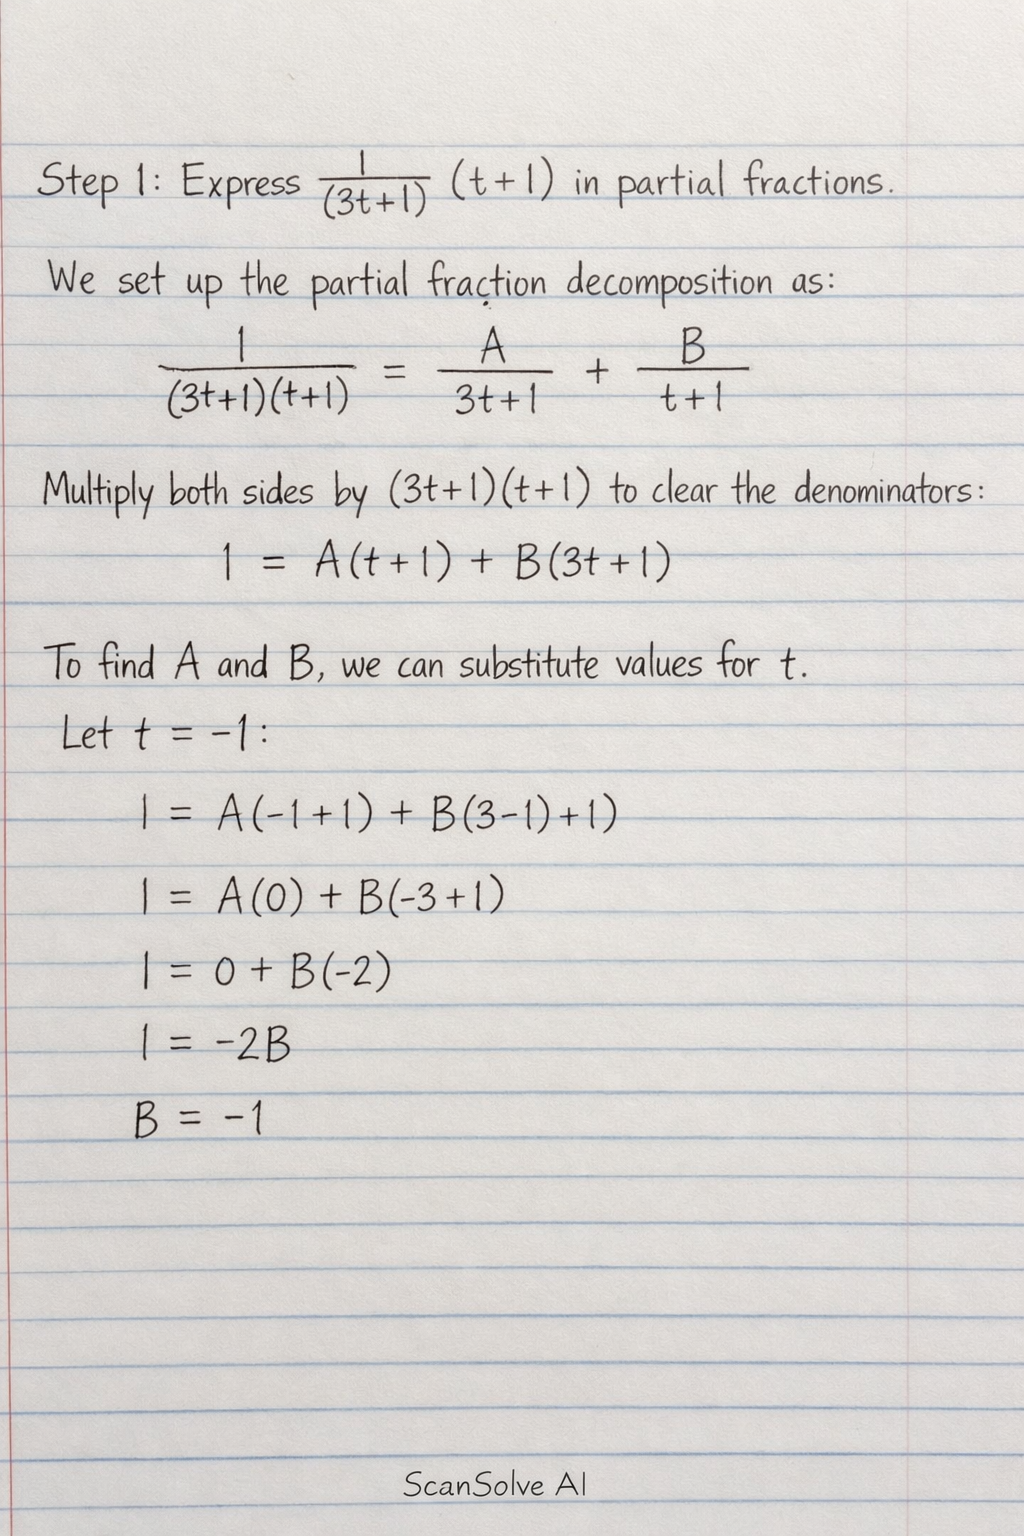 Step 1: Express 1/(3t+1) (t+1) in partial fractions.
We set up the partial fraction decomposition as:
1/((3t+1)(t+1)) = A/(3t+1) + B/(t+1)
Multiply both sides by (3t+1)(t+1) to clear the denominators:
1 = A(t+1) + B(3t+1)
To find A and B, we can substitute values for t.
Let t = -1:
1 = A(-1+1) + B(3-1)+1)
1 = A(0) + B(-3+1)
1 = 0 + B(-2)
1 = -2B
B = -1
ScanSolve AI